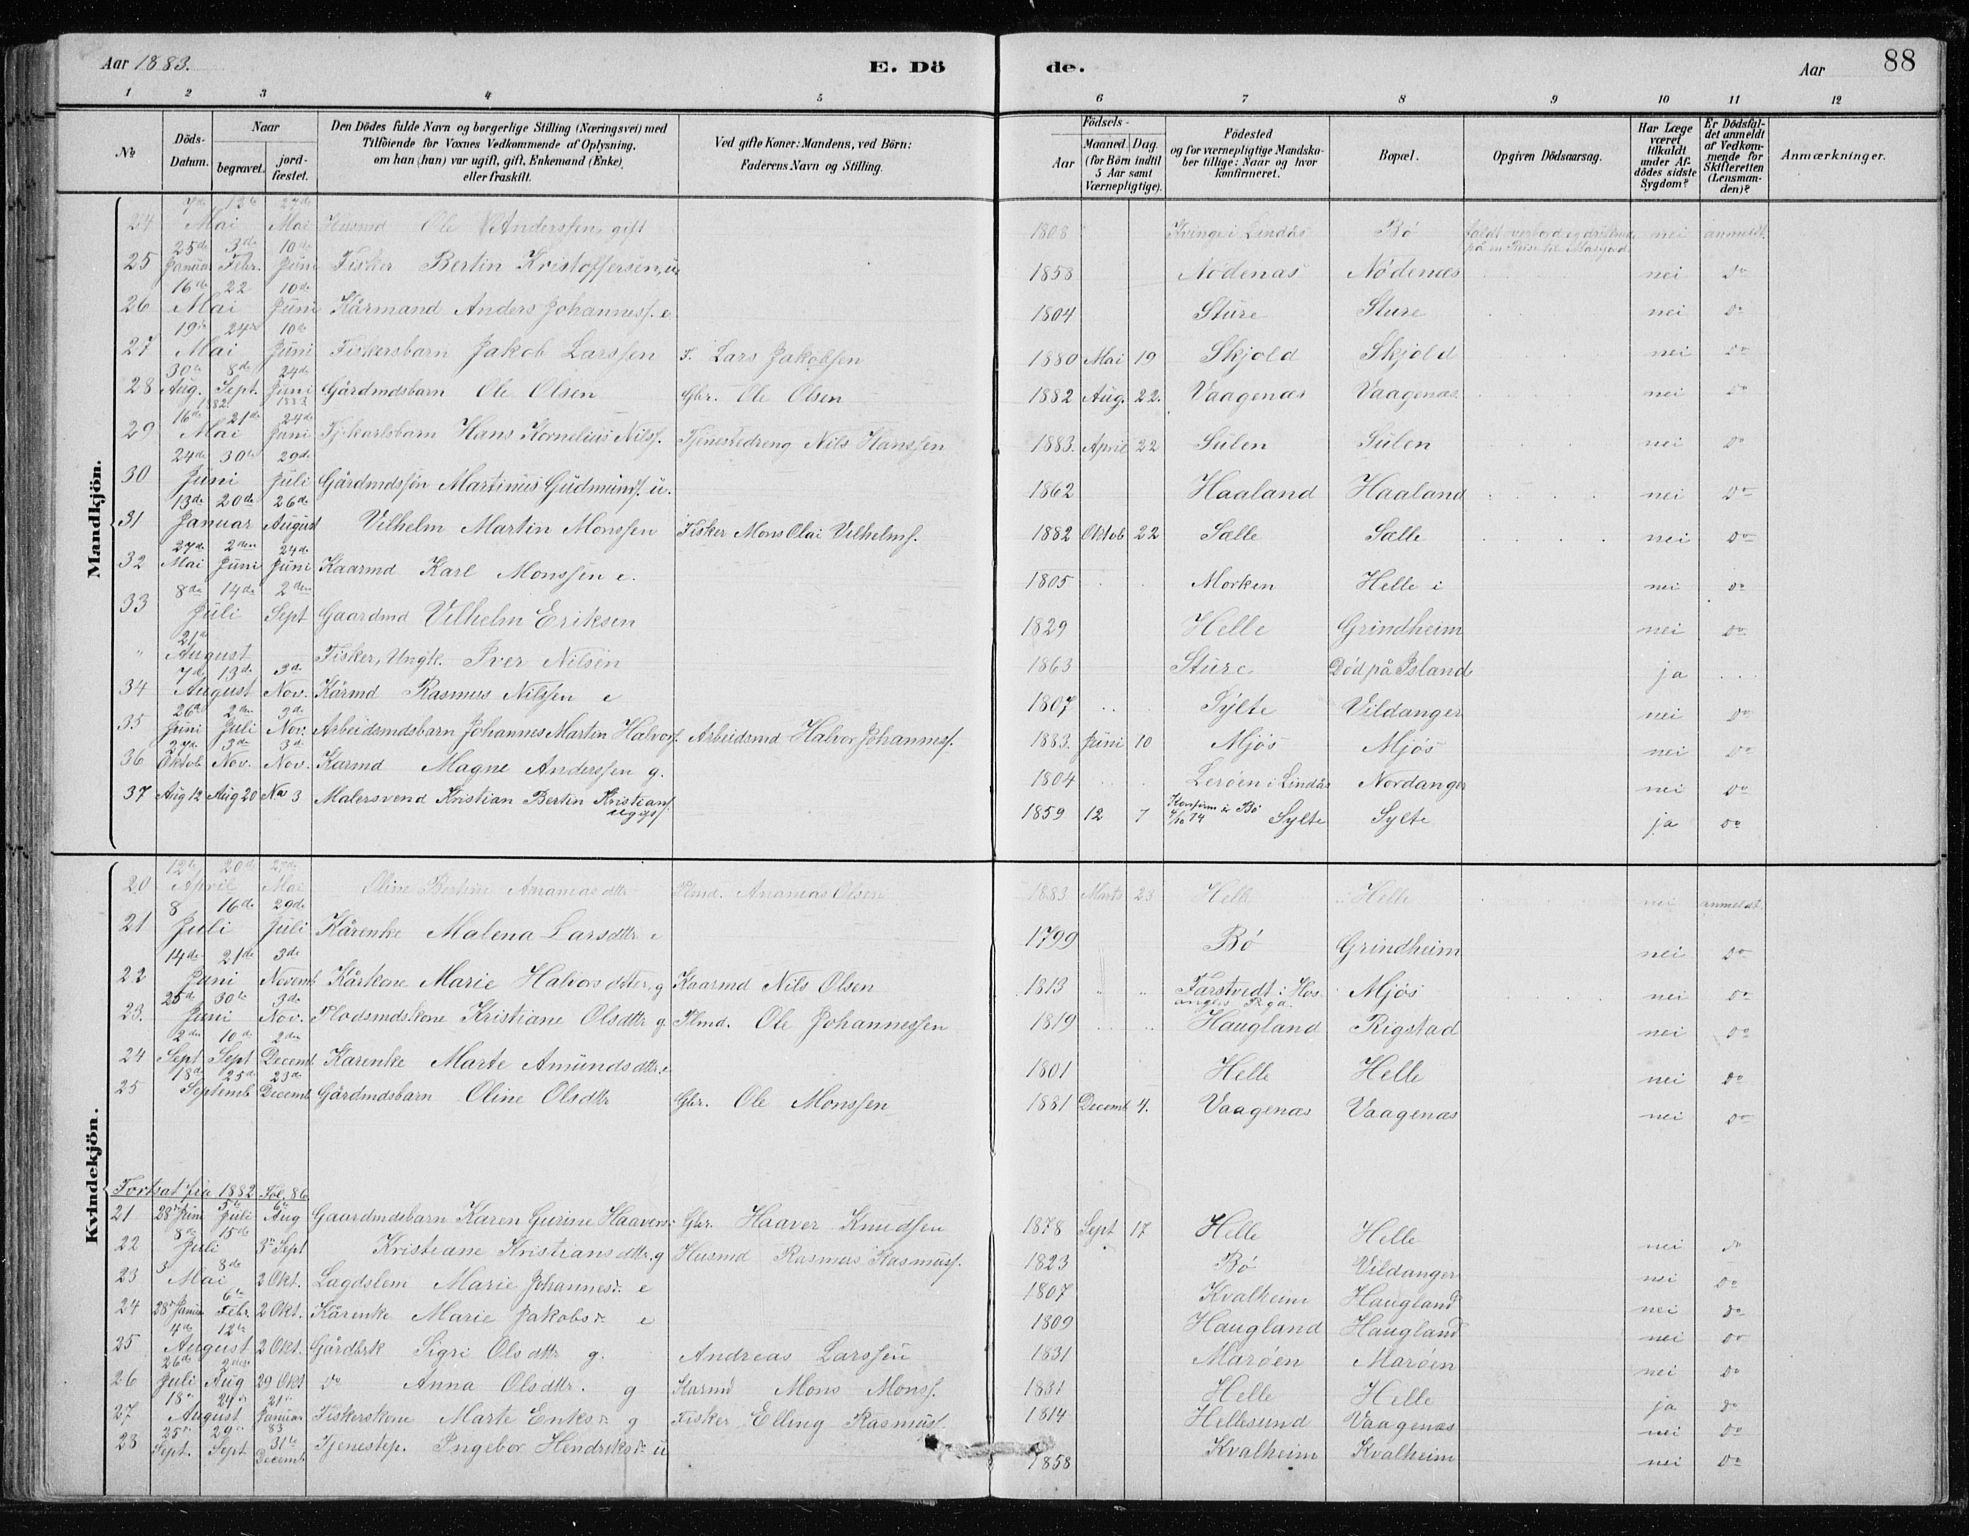 Aar 1883. E. Dö de. Aar 88
1 2 3 4 5 6 7 8 9 10 11 12
No.
Döds-Datum.
Naar
begravet.
jord-fæstet.
Den Dödes fulde Navn og borgerlige Stilling (Næringsvei) med Tilföiende for Voxnes Vedkommende af Oplysning, om han (hun) var ugift, gift, Enkemand (Enke), eller fraskilt.
Ved gifte Koner: Mandens, ved Börn: Faderens Navn og Stilling.
Födsels-
Aar
Maaned. Dag. (for Börn indtil 5 Aar samt Værnepligtige).
Födested og for værnepligtige Mandskaber tillige: Naar og hvor konfirmeret.
Bopæl.
Opgiven Dödsaarsag.
Har Læge været tilkaldt under Afdödes sidste Sygdom?
Er Dödsfaldet anmeldt af Vedkommende for Skifteretten (Lensmanden)?
Anmærkninger.
Mandkjön.
24 7de 12te Mai 27de Mai Husmd Ole Anderssen, gift 1808 Kvinge i Lindås Bø nei anmeldt.
25 25de Januar 3de Febr. 10de Juni Fisker Bertin Kristoffersen, u 1858 Nødenæs Nødenæs nei do
26 16de 22 Mai 10de Juni Kårmand Anders Johanness. e 1804 Sture Sture nei do
27 19de 24de Mai 10de Juni Fiskersbarn Jakob Larssen F. Lars Jakobsen 1880 Mai 19 Skjold Skjold nei do
28 30te Aug. 8de Sept. 1882 24de Juni 1883 Gårdmdsbarn Ole Olsen Gbr. Ole Olsen 1882 Aug. 22. Vaagenæs Vaagenæs nei do
29 16de 21de Mai 24de Juni Tjkarlsbarn Hans Kornelius Nilss. Tjenestedreng Nils Hanssen 1883. April 22 Sulen Sulen nei do
30 24de 30te Juni 29de Juli Gårdmdssøn Martinus Gudmunds. u. 1862 Haaland Haaland nei do
31 13de 20de Januar 26de August Vilhelm Martin Monssen Fisker Mons Olai Vilhelms. 1882 Oktob 22 Salle Salle nei do
32 27de Mai 2den Juni 24de Juni Kaarmd Karl Monssen e. 1805 Morken Helle i nei do
33 8de 14de Juli 2den Sept Gaardmd Vilhelm Eriksen 1829 Helle Grindheim nei do
" 21de August Fisker, Ungk. Iver Nilsen 1863 Sture Død på Island ja
34 7de 13de August 3de Nov. Kårmd Rasmus Nilssen e 1807 Sylte Vildanger nei do
35 26de Juni 2den Juli 3de Nov. Arbeidsmdsbarn Johannes Martin Halvors. Arbeidsmd Halvor Johanness. 1883. Juni 10 Mjøs Mjøs nei do
36 27de Oktob 3de Nov. 3de Nov. Kårmd Magne Anderssen g. 1804 Lerøen i Lindås Nordanger nei do
37 Aug 12 Aug 20 Nov 3 Malersvend Kristian Bertin Kristians. 1859 12 7 Konfirm. i Bø 4/10 74 Sylte Sylte ja do
Kvindekjön.
20 12te 20de April 27de Mai Oline Bertine Ananiasdttr Plmd. Ananias Olsen 1883 Marts 23 Helle Helle nei anmeldt.
21 8 16de Juli 29de Juli Kårenke Malena Larsdttr e 1799 Bø Grindheim nei do
22 14de 21de Juni 3de Novemb Kårkone Marie Halvorsdtter, g Kaarmd Nils Olsen 1813 Farstvedt i Hosangers Pgd. Mjøs nei do
23. 25de 30te Juni 3de Nov. Plodsmdskone Kristiane Olsdttr g. Plmd. Ole Johannessen 1819 Haugland Rigstad nei do
24 2den Sept 10de Sept 2den Decemb Kårenke Marte Amundsdttr. e 1801 Helle Helle nei do
25 18de 25de Septemb 23de Decemb Gårdmdsbarn Oline Olsdttr Gbr. Ole Monssen 1881 Decemb 4. Vaagenæs Vaagenæs nei do
Fortsat fra 1882 Fol. 86
21 28de Juni 5te Juli 6te Aug Gaardmdsbarn Karen Gurine Haavers. Gbr. Haaver Knudsen 1878 Sept 17 Helle Helle nei do
22 8de 15de Juli 3de Sept Kristiane Kristiansdttr. g Husmd Rasmus Rasmuss. 1823 Bø Vildanger nei do
23 3 8de Mai 2 Okt. Lægdslem Marie Johannesdr. e 1807 Kvalheim Haugland nei do
24 28de Januar 6te Febr. 2 Okt. Kårenke Marie Jakobsdr. e 1809 Haugland Haugland nei do
25 4de 12te August 2 Okt. Gårdbrk Sigri Olsdttr g. Andreas Larssen 1831 Marøen Marøen nei do
26 26de Juli 2den Aug 29 Okt do Anna Olsdttr. g Karmd Mons Monss. 1831 Helle Helle ja do
27 18de 24de August 21de Januar 83 Fiskerskone Marte Enksdr. g Fisker Elling Rasmuss. 1814 Hellesund Vaagenæs nei do
28 25de Sept. 29de Sept 31te Decemb Tjenestep. Ingebor Hendriksdr. u 1858 Kvalheim Kvalheim nei do